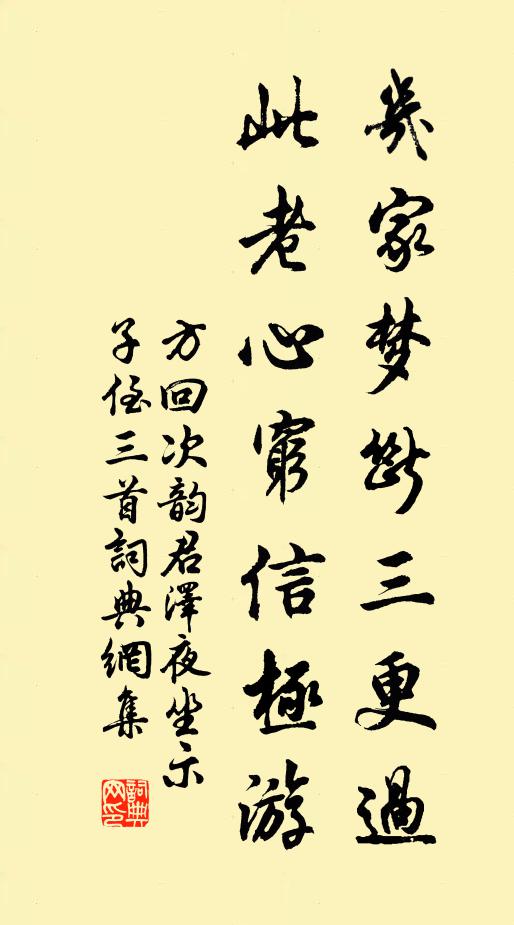 幾家梦斷三更過
此老心窮信極游
方回次韵君澤夜坐示
子侄三首詞典網集
詞典网印